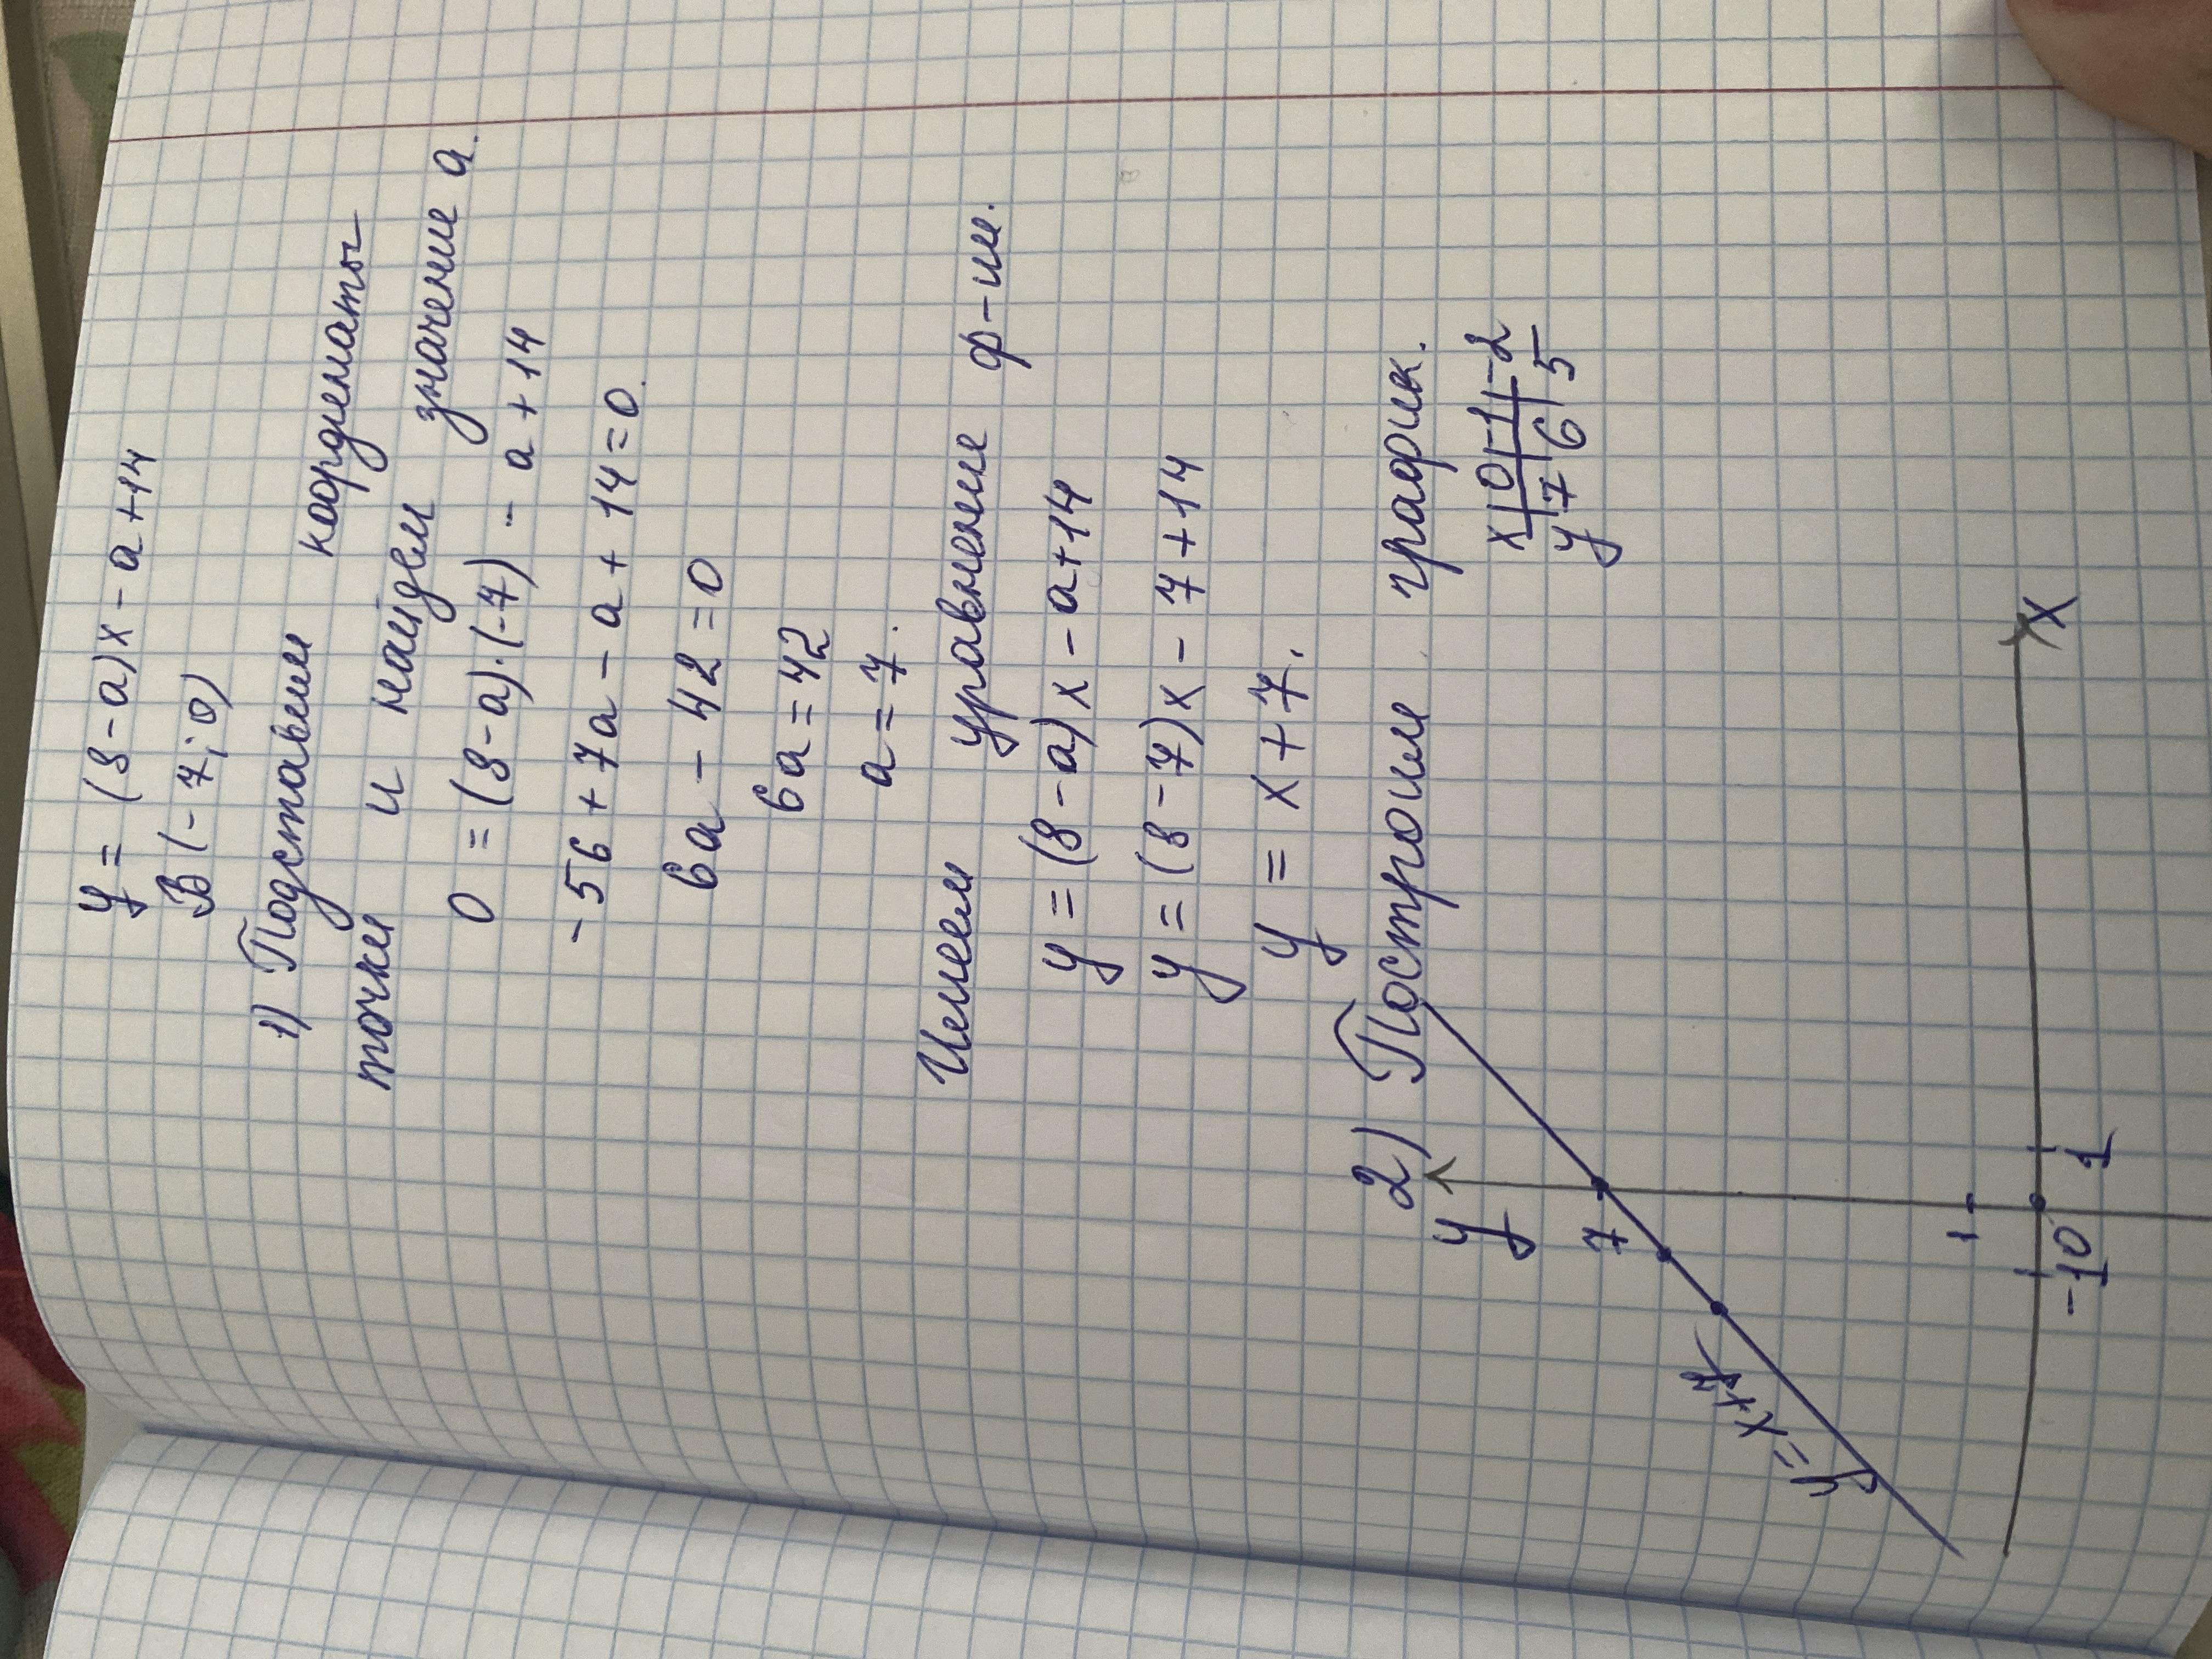 y = (8-a)x - a+14
B(-7; 0)
1) Подставим координаты
точки и найдем значение а.
0 = (8-a)·(-7) - a+14
-56+7a - a+14=0.
6a - 42=0
6a=42
a=7.
Имеем уравнение ф-ии.
y=(8-a)x - a+14
y=(8-7)x - 7+14
y = x+7.
2) Построим график.
x | 0 | -1 | -2
y | 7 | 6 | 5
y
7
y=x+7
1
-1 0 1
x